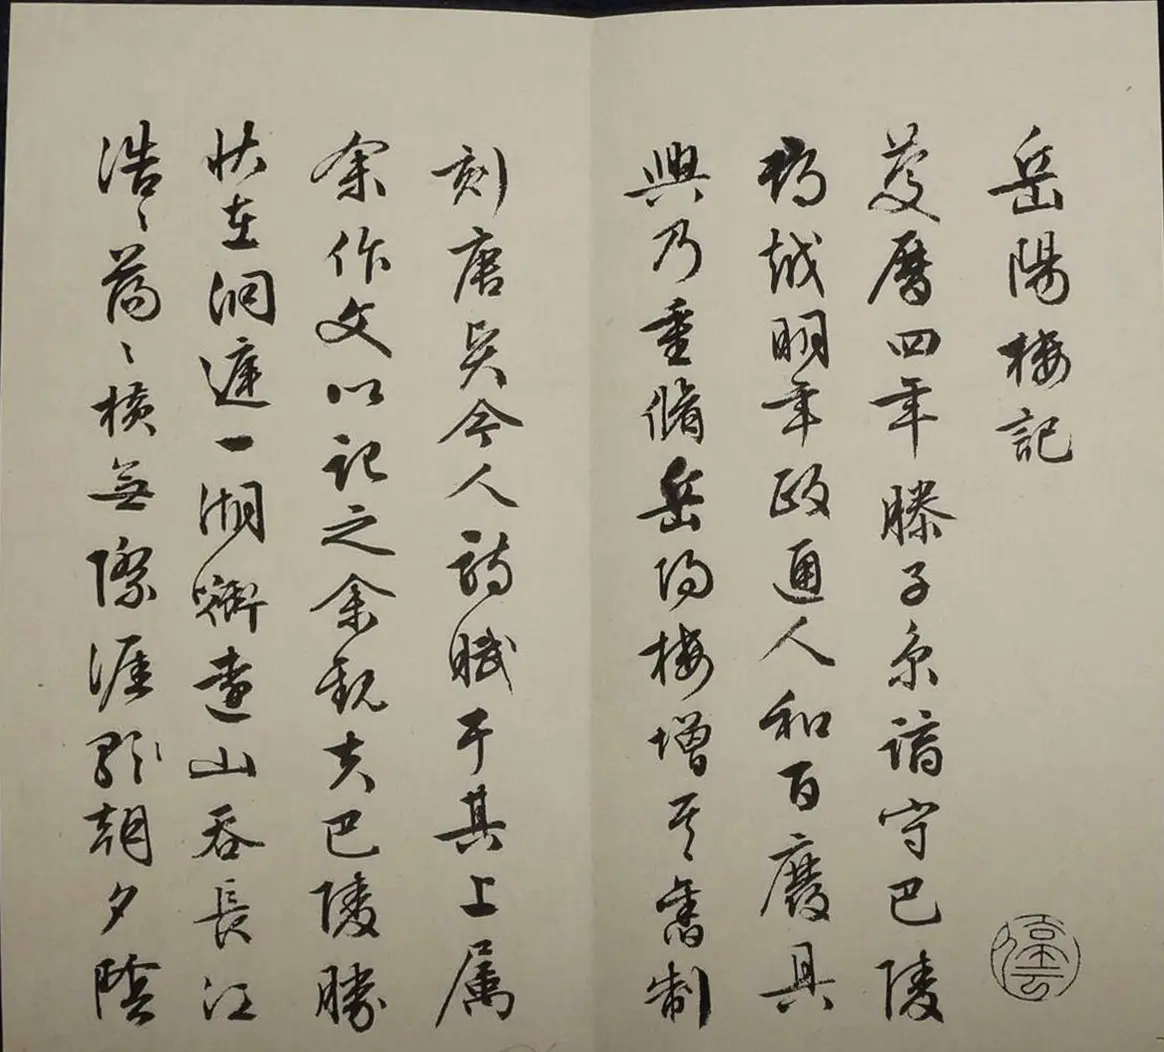 岳陽樓記
慶曆四年滕子京謫守巴陵
郡越明年政通人和百廢具
興乃重脩岳陽樓增其舊制
刻唐賢今人詩賦于其上属
余作文以記之余觀夫巴陵勝
狀在洞庭一湖銜遠山吞長江
浩〻蕩〻橫無際涯朝夕陰